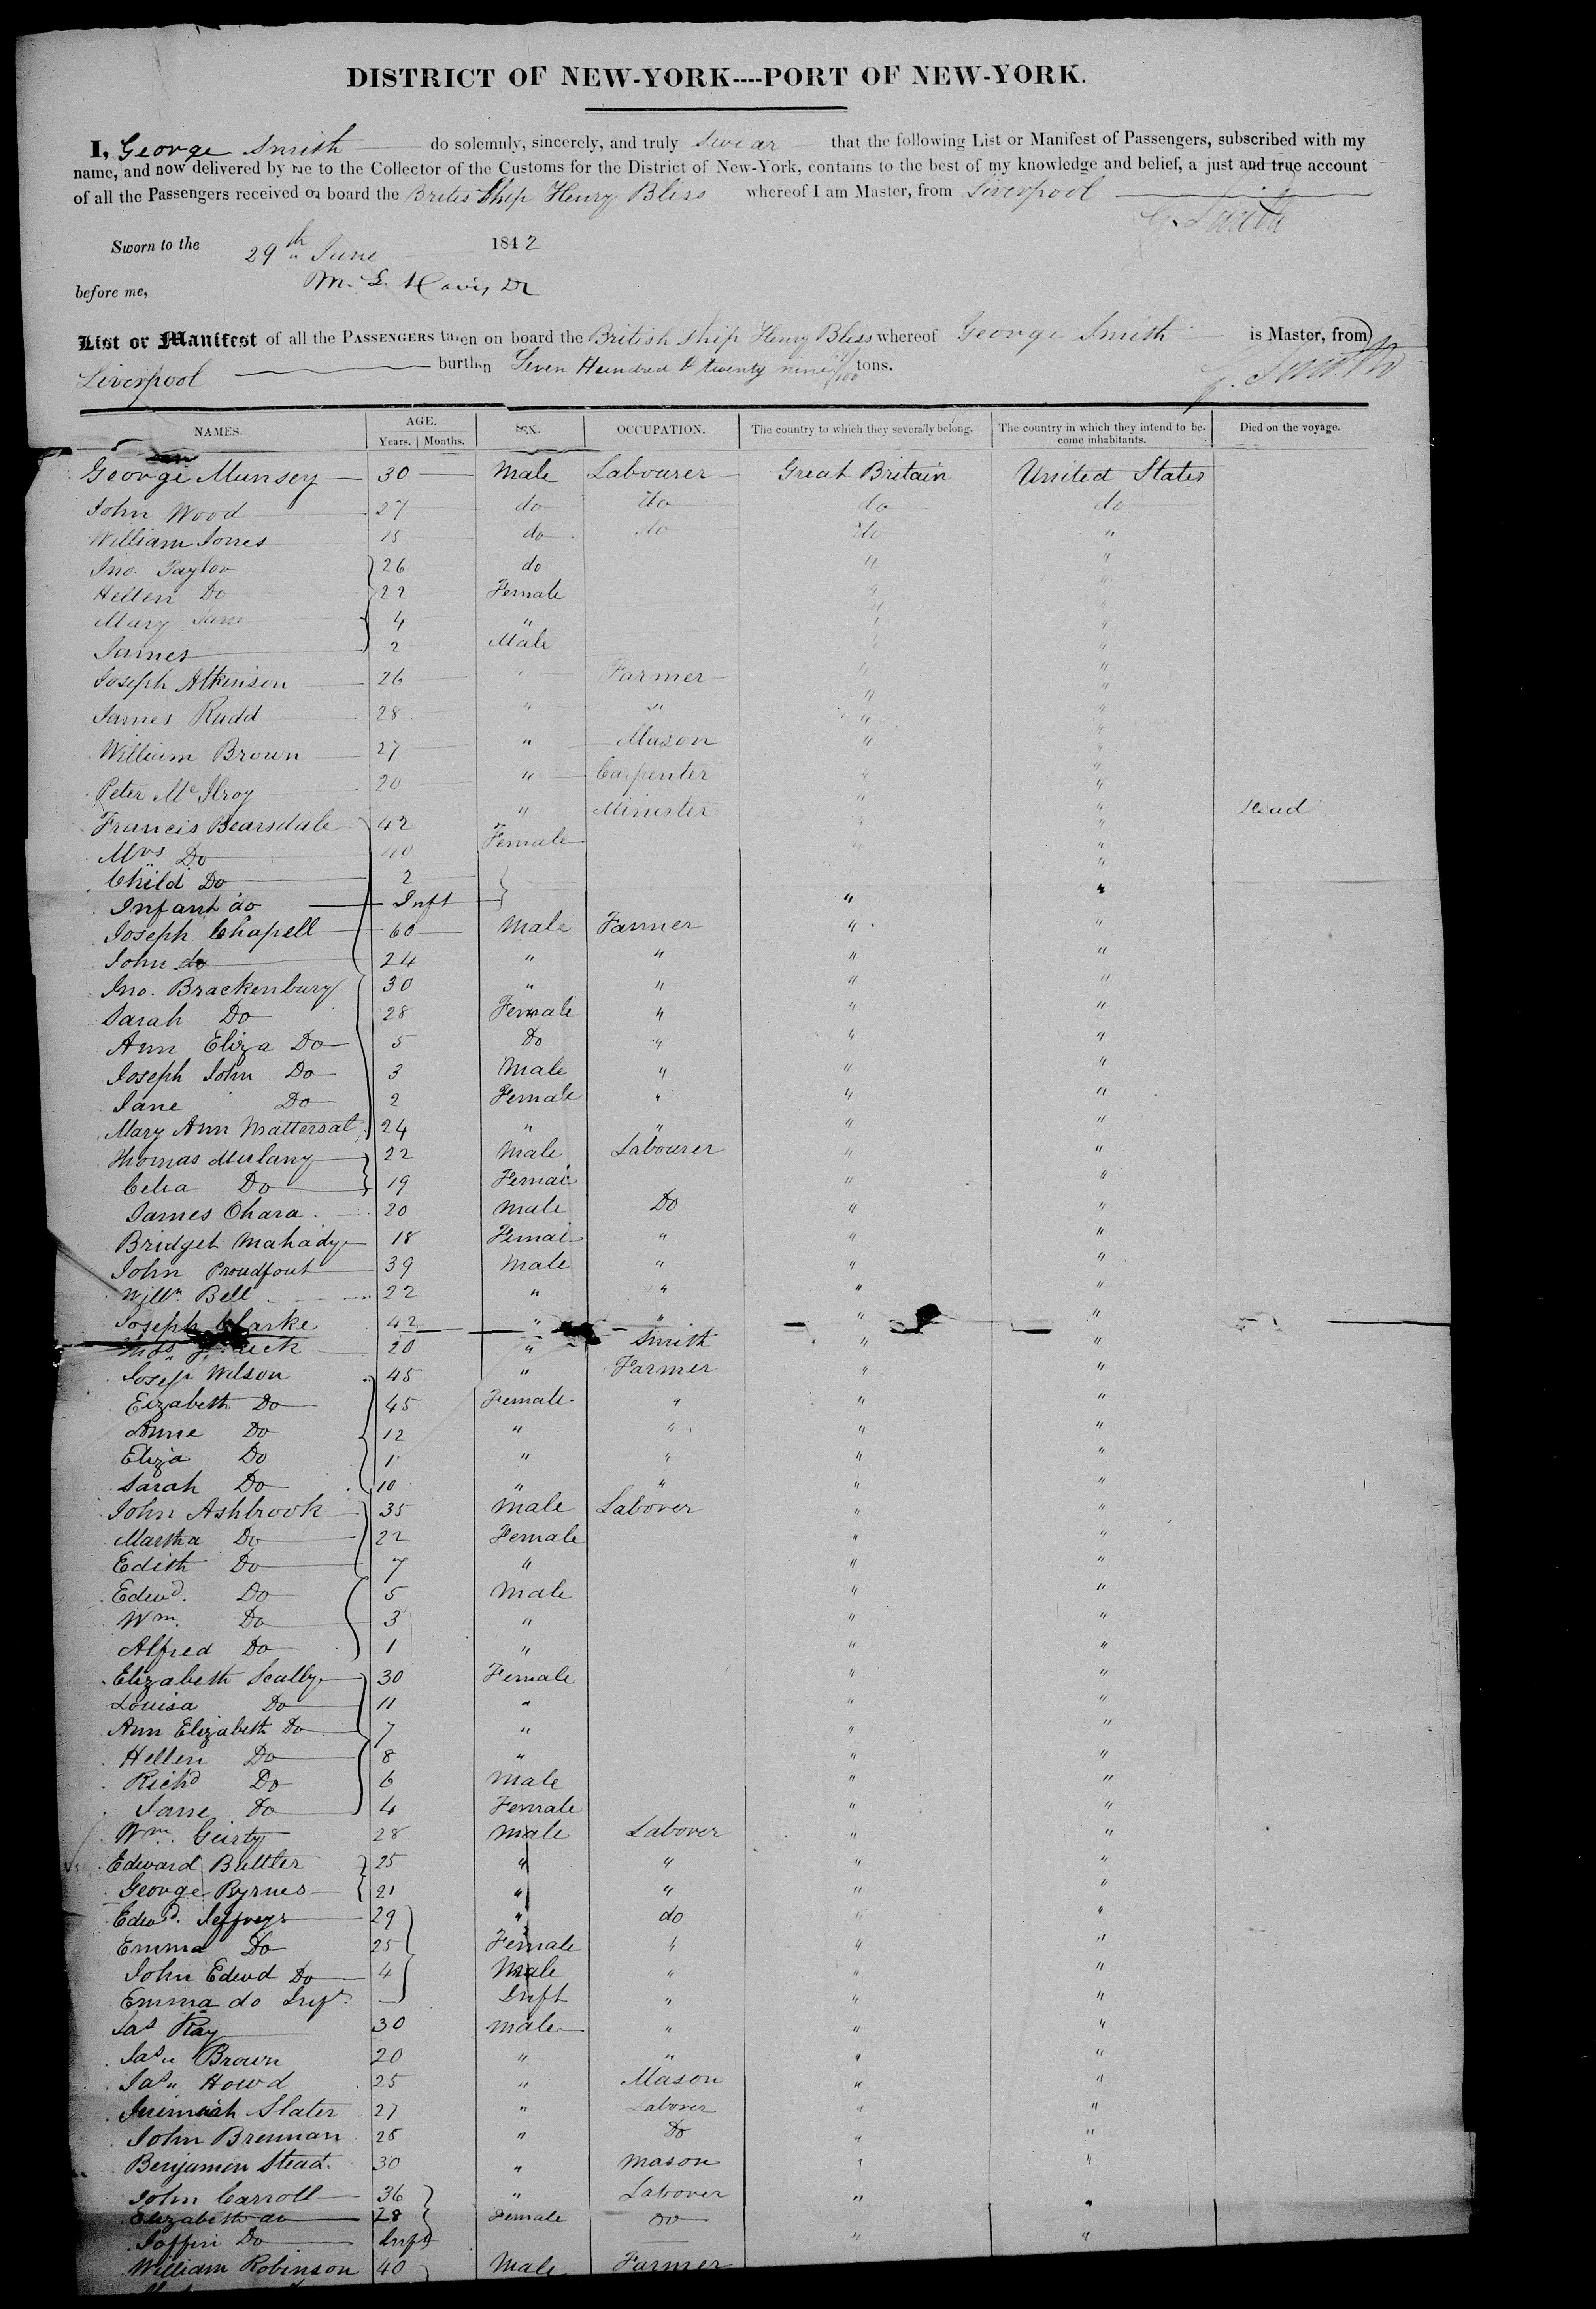 DISTRICT OF NEW-YORK----PORT OF NEW-YORK.
I, George Smith do solemnly, sincerely, and truly swear that the following List or Manifest of Passengers, subscribed with my
name, and now delivered by me to the Collector of the Customs for the District of New-York, contains to the best of my knowledge and belief, a just and true account
of all the Passengers received on board the British Ship Henry Bliss whereof I am Master, from Liverpool
G. Smith
Sworn to the 29th June 1842
before me, M. L. Davis
List or Manifest of all the PASSENGERS taken on board the British Ship Henry Bliss whereof George Smith is Master, from
Liverpool burthen Seven Hundred & twenty nine /100 tons. G. Smith
NAMES. AGE. SEX. OCCUPATION. The country to which they severally belong. The country in which they intend to be- Died on the voyage.
Years. | Months. come inhabitants.
George Munsey 30 Male Labourer Great Britain United States
John Wood 27 do do do do
William Jones 15 do do do "
Jno. Taylor 26 do " "
Hellen Do 22 Female " "
Mary Jane 4 " " "
James 2 Male " "
Joseph Atkinson 26 " Farmer " "
James Rudd 28 " " " "
William Brown 27 " Mason " "
Peter McIlroy 20 " Carpenter " "
Francis Bearsdale 42 " Minister " " Dead
Mrs Do 40 Female " "
Child Do 2 "
Infant do Inft " "
Joseph Chapell 60 Male Farmer " "
John do 24 " " " "
Jno. Brackenbury 30 " " " "
Sarah Do 28 Female " " "
Ann Eliza Do 5 Do " " "
Joseph John Do 3 Male " " "
Jane Do 2 Female " " "
Mary Ann Mattersal 24 " " " "
Thomas Mulany 22 Male Labourer " "
Celia Do 19 Female " "
James Ohara 20 Male Do " "
Bridget Mahady 18 Female " " "
John Proudfout 39 Male " " "
Willm Bell 22 " " " "
Joseph Clarke 42 " " " "
Thos 20 " Smith " "
Joseph Wilson 45 " Farmer " "
Elzabeth Do 45 Female " " "
Anne Do 12 " " " "
Eliza Do 1 " " " "
Sarah Do 10 " " " "
John Ashbrook 35 Male Laborer " "
Martha Do 22 Female " "
Edith Do 7 " " "
Edwd. Do 5 Male " "
Wm. Do 3 " " "
Alfred Do 1 " " "
Elizabeth Scally 30 Female " "
Louisa Do 11 " " "
Ann Elizabeth Do 7 " " "
Hellen Do 8 " " "
Richd Do 6 Male " "
Jane Do 4 Female " "
Wm. Geirty 28 Male Laborer " "
Edward Buttler 25 " " " "
George Byrnes 21 " " " "
Edwd. Jeffreys 29 " do " "
Emma Do 25 Female " " "
John Edwd Do 4 Male " " "
Emma do Inft. — Inft " " "
Jas Ray 30 Male " " "
Jas " Brown 20 " " " "
Jas " Howd 25 " Mason " "
Jeremiah Slater 27 " Laborer " "
John Brennan 28 " Do " "
Benjamin Stead. 30 " Mason " "
John Carroll 36 " Laborer " "
Elizabeth do 28 Female Do
Joffin Do Inft " "
William Robinson 40 Male Farmer